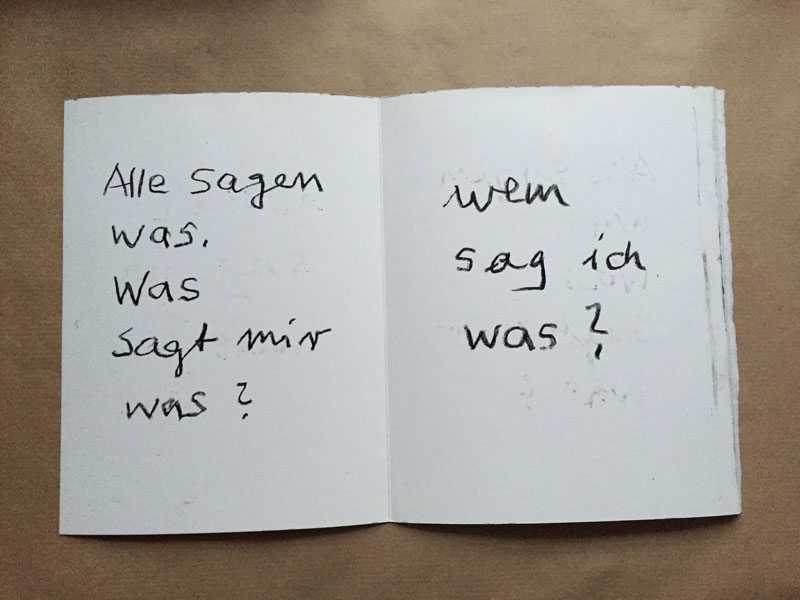 Alle sagen
was.
Was
sagt mir
was?
wem
sag ich
was?